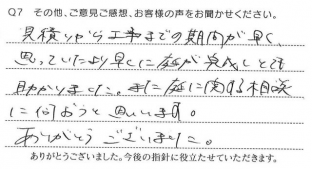 Q7 その他、ご意見ご感想、お客様の声をお聞かせください。
見積りから工事までの期間が早く、
思っていたより早くに庭が完成しとても
助かりました。また庭に関する相談
に伺おうと思います。
ありがとうございました。
ありがとうございました。今後の指針に役立たせていただきます。